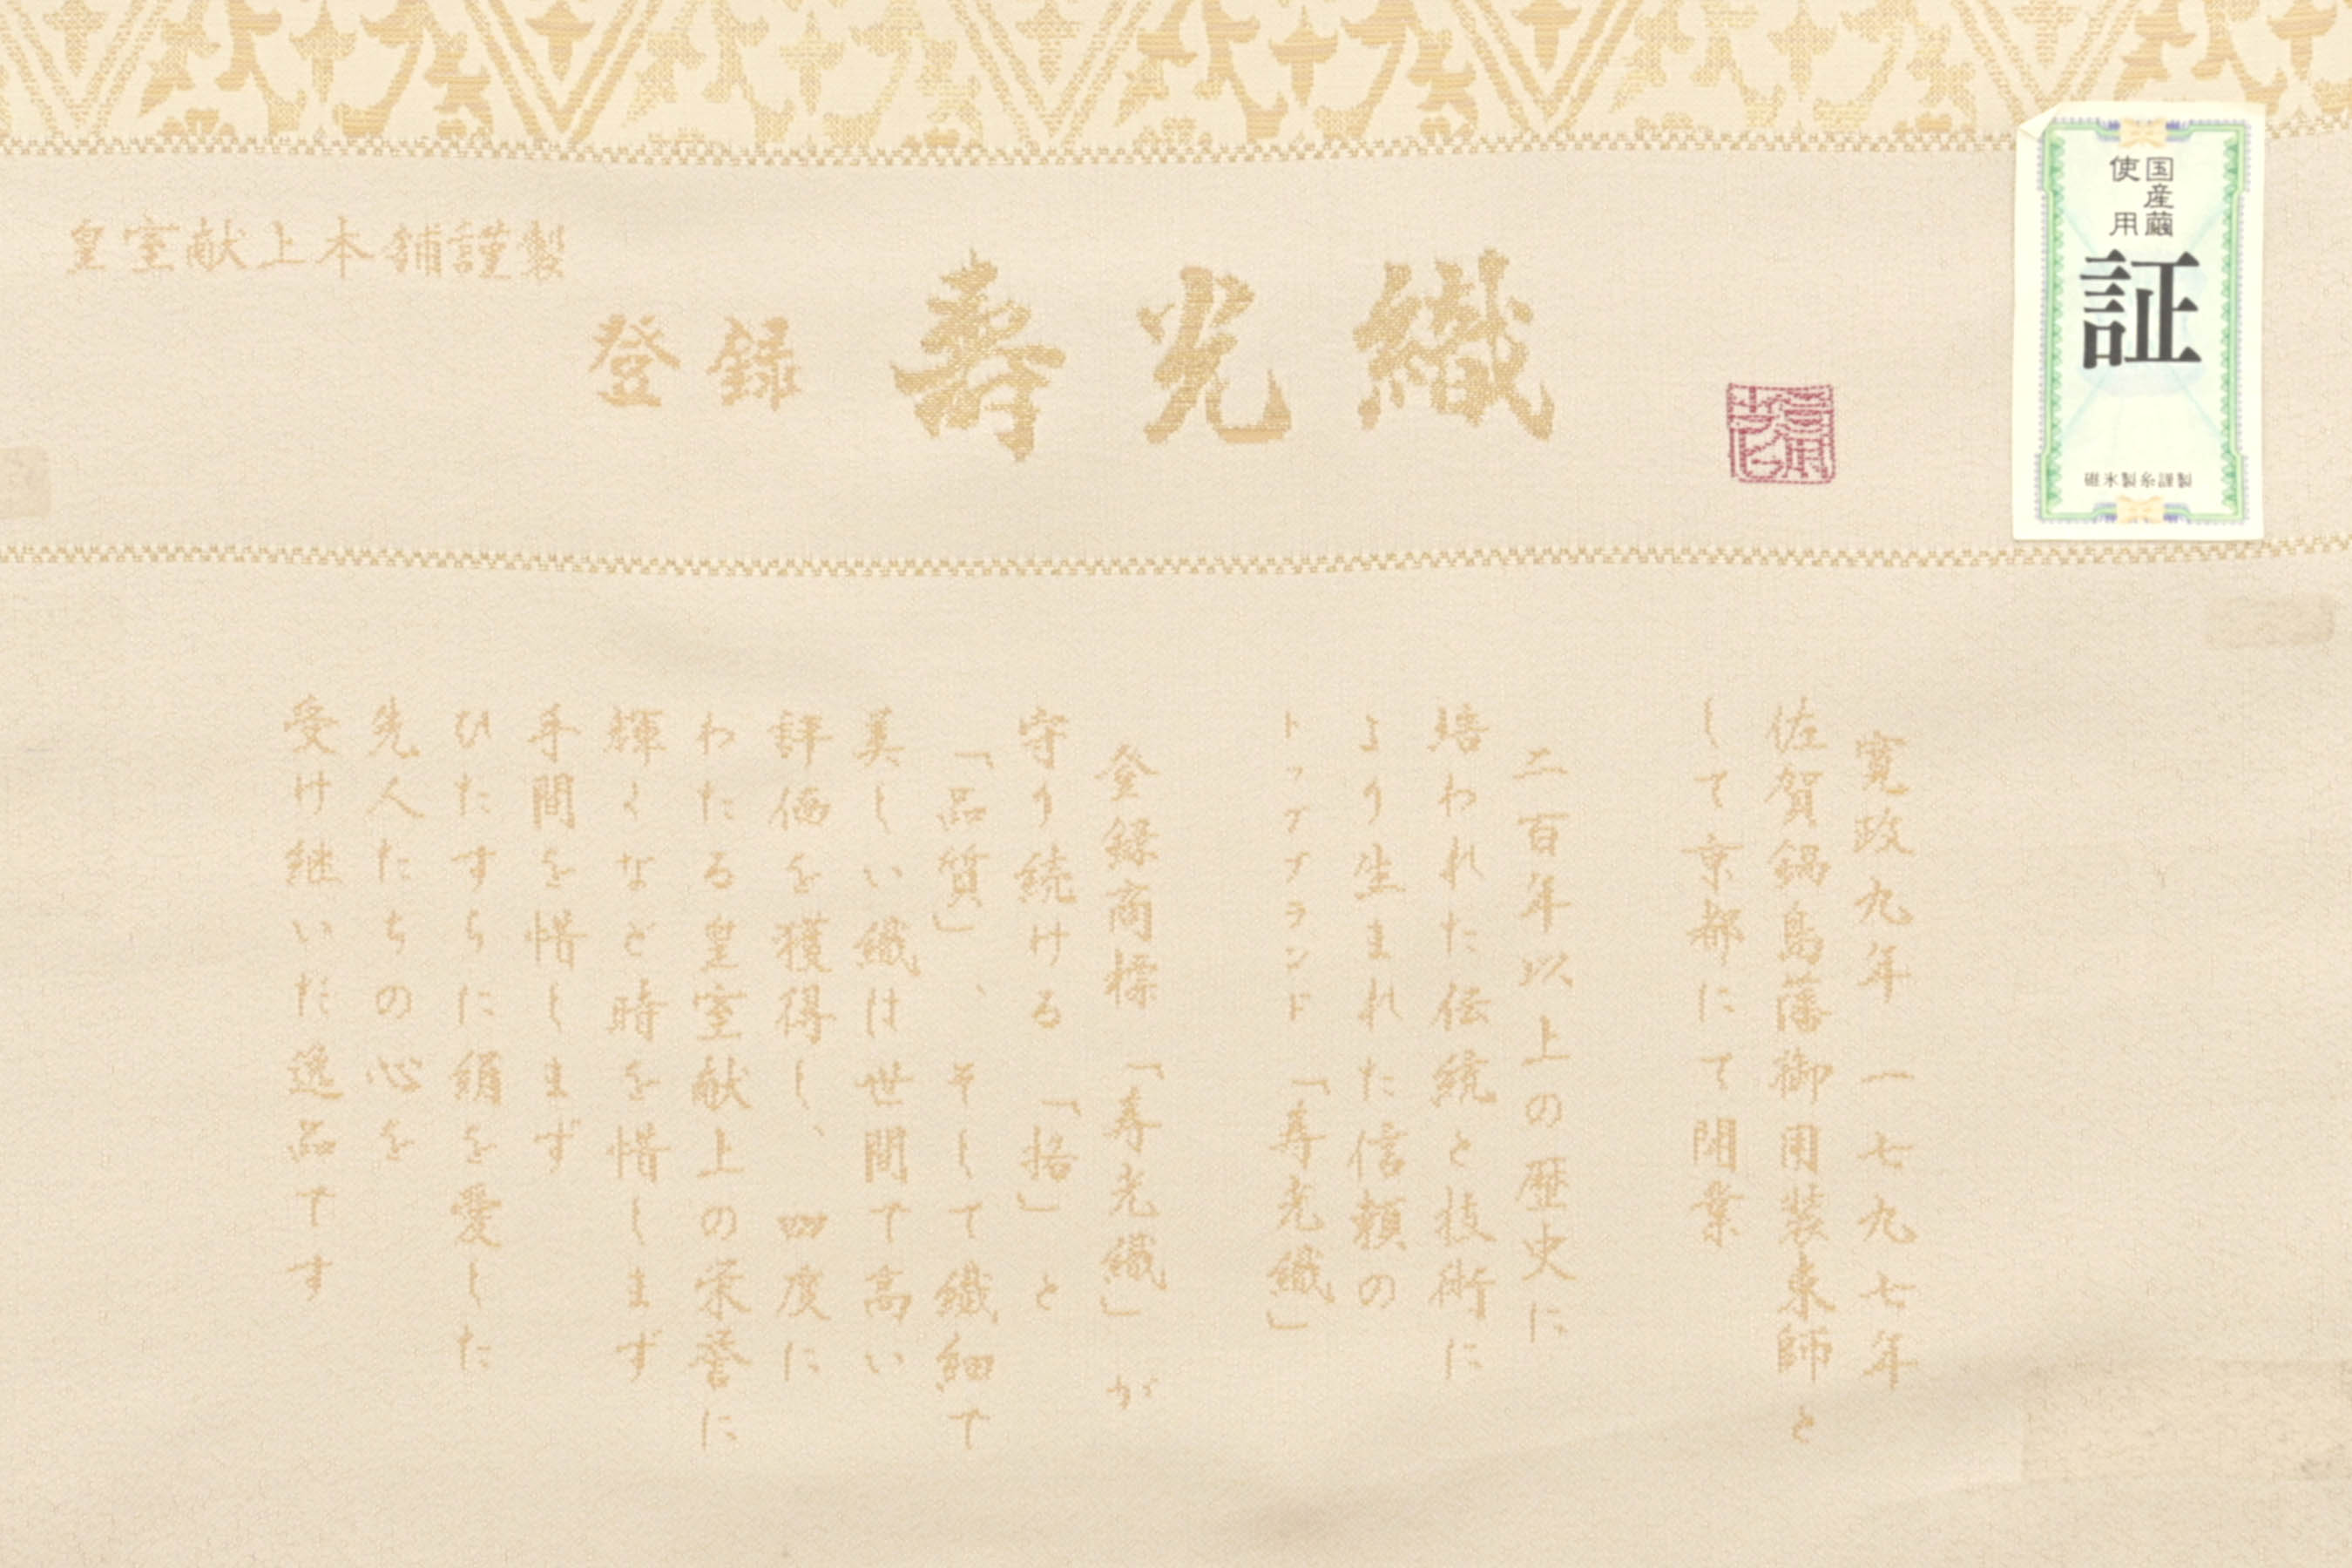 皇室献上本舗謹製
登録 壽光織
国産繭
使用
証
寛政九年 一七九七年
佐賀鍋島藩御用装束師と
して京都にて開業
二百年以上の歴史に
培われた伝統と技術に
より生まれた信頼の
トップブランド「寿光織」
登録商標「寿光織」が
守り続ける「格」と
「品質」、そして繊細で
美しい織は世間で高い
評価を獲得し、四度に
わたる皇室献上の栄誉に
輝くなど時を惜しまず
手間を惜しまず
ひたすらに絹を愛した
先人たちの心を
受け継いだ逸品です